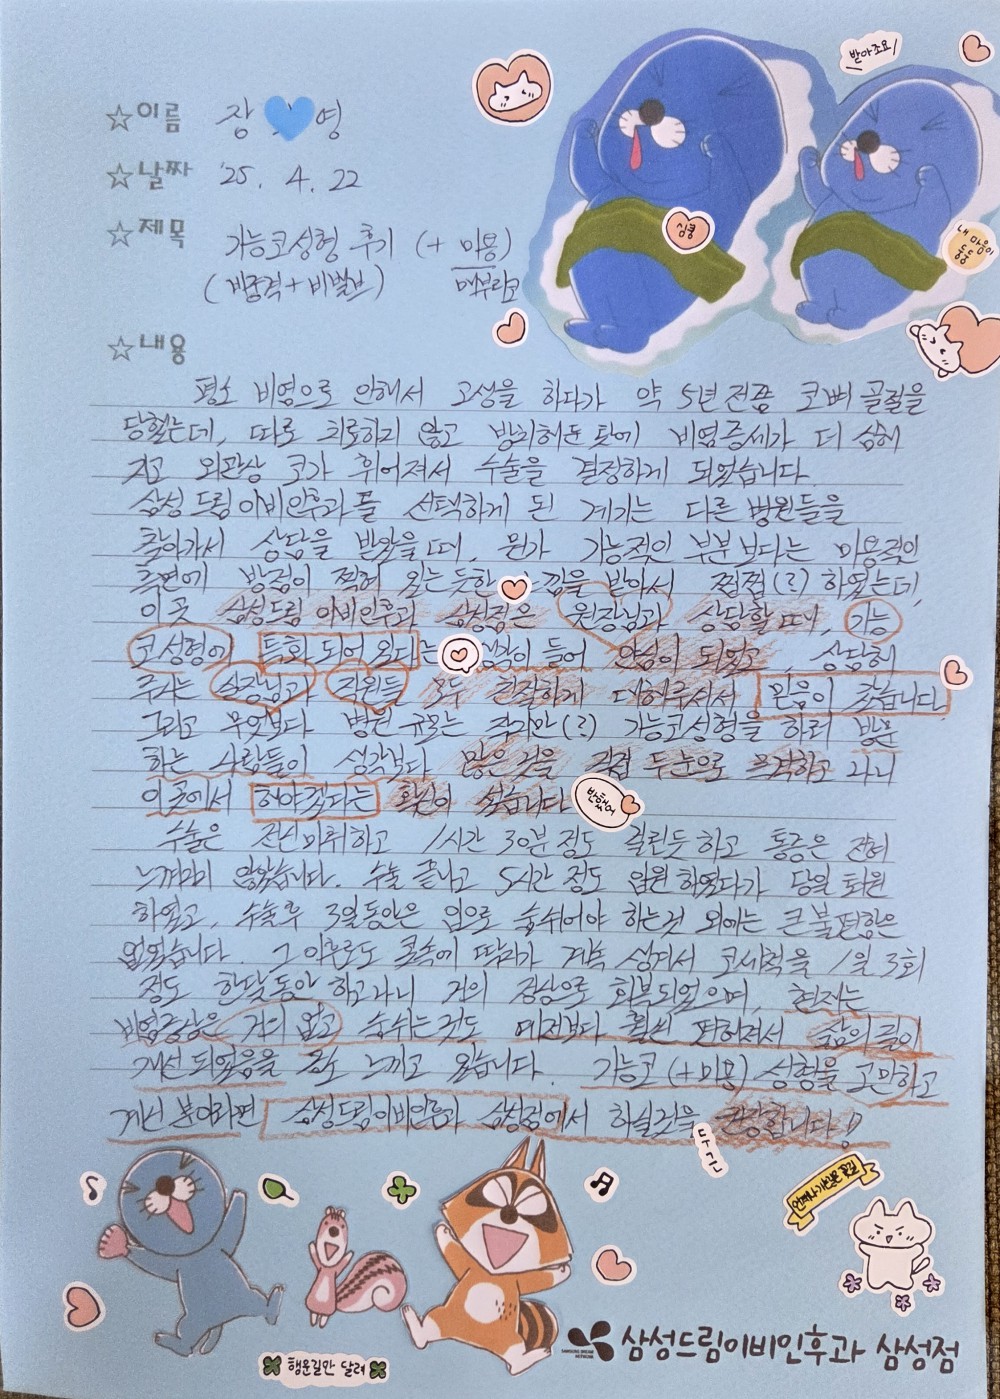 받아조요!
☆이름 장 영
☆날짜 '25. 4. 22
☆제목 가능코성형 후기 (+ 미용)
(비중격+비밸브) 매부리코
심쿵
내 마음이 둥둥
☆내용
평소 비염으로 인해서 고생을 하다가 약 5년전쯤 코뼈 골절을
당했는데, 따로 치료하지 않고 방치해둔 탓에 비염증세가 더 심해
지고 외관상 코가 휘어져서 수술을 결정하게 되었습니다.
삼성드림이비인후과를 선택하게 된 계기는 다른 병원들을
찾아가서 상담을 받았을때, 뭔가 기능적인 부분보다는 미용적인
측면에 방점이 찍혀 있는듯한 느낌을 받아서 찝찝(?) 하였는데,
이곳 삼성드림이비인후과 삼성점은 원장님과 상담할때, 기능
코성형에 특화되어 있다는 생각이 들어 안심이 되었고, 상담해
주시는 실장님과 직원들 모두 친절하게 대해주셔서 믿음이 갔습니다.
그리고 무엇보다 병원 규모는 작지만(?) 기능코성형을 하러 방문
하는 사람들이 생각보다 많은것을 직접 두눈으로 목격하고 나니
이곳에서 해야겠다는 확신이 섰습니다
반했어
수술은 전신마취하고 1시간 30분정도 걸린듯 하고 통증은 전혀
느껴지지 않았습니다. 수술 끝나고 5시간 정도 입원하였다가 당일 퇴원
하였고, 수술후 3일동안은 입으로 숨쉬어야 하는것 외에는 큰 불편함은
없었습니다. 그 이후로도 콧속에 딱지가 계속 생겨서 코세척을 1일 3회
정도 한달동안 하고나니 거의 정상으로 회복되었으며, 현재는
비염증상은 거의 없고 숨쉬는것도 예전보다 훨씬 편해져서 삶의 질이
개선되었음을 몸소 느끼고 있습니다. 기능코(+미용) 성형을 고민하고
계신 분이라면 삼성드림이비인후과 삼성점에서 하실것을 권장합니다!
두근
언제나 개선문 골로
행운길만 달려
SAMSUNG DREAM NETWORK
삼성드림이비인후과 삼성점